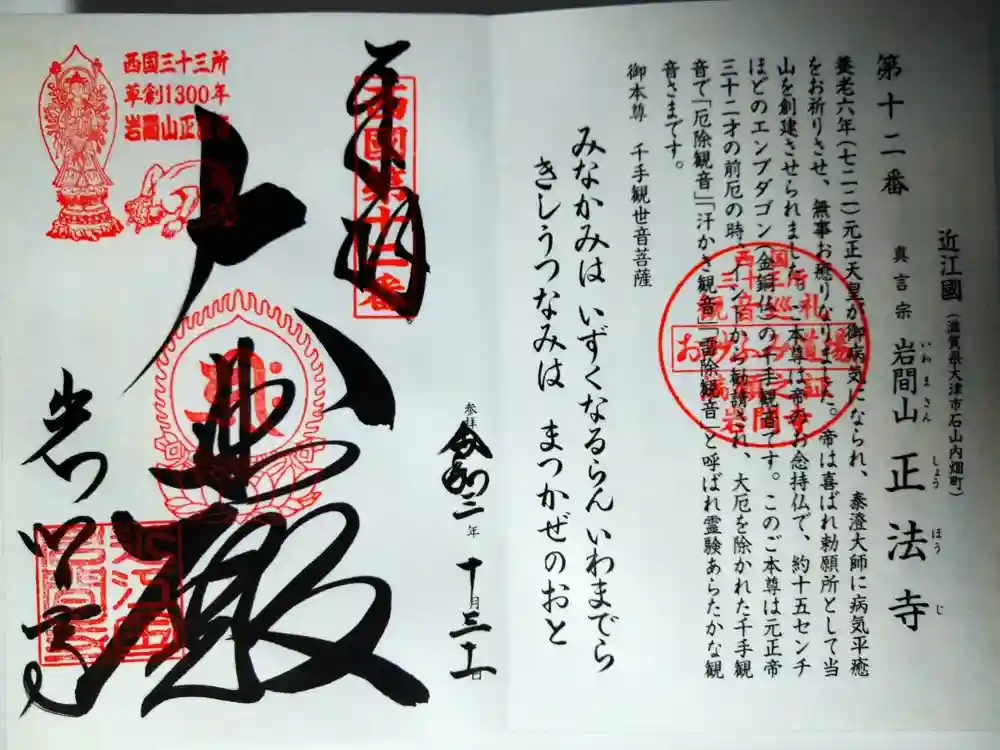 近江國（滋賀県大津市石山内畑町）
第十二番　真言宗　岩間山　正法寺
いわまさん　しょうほうじ
養老六年（七二二）元正天皇が御病気になられ、泰澄大師に病気平癒
をお祈りさせ、無事お癒りなりました。帝は喜ばれ勅願所として当
山を創建させられました。ご本尊は帝のお念持仏で、約十五センチ
ほどのエンブダゴン（金銅仏）の千手観音です。このご本尊は元正帝
三十二才の前厄の時、インドから勧請され、大厄を除かれた千手観
音で「厄除観音」「汗かき観音」「雷除観音」と呼ばれ霊験あらたかな観
音さまです。
御本尊　千手観世音菩薩
みなかみは いずくなるらん いわまでら
きしうつなみは まつかぜのおと
西国
三十三所
観音巡礼
おみ
岩間寺
参拝
令和三年十月三十一日
奉拝
西國第十二番
大悲殿
岩間寺
西国三十三所
草創1300年
岩間山正法寺